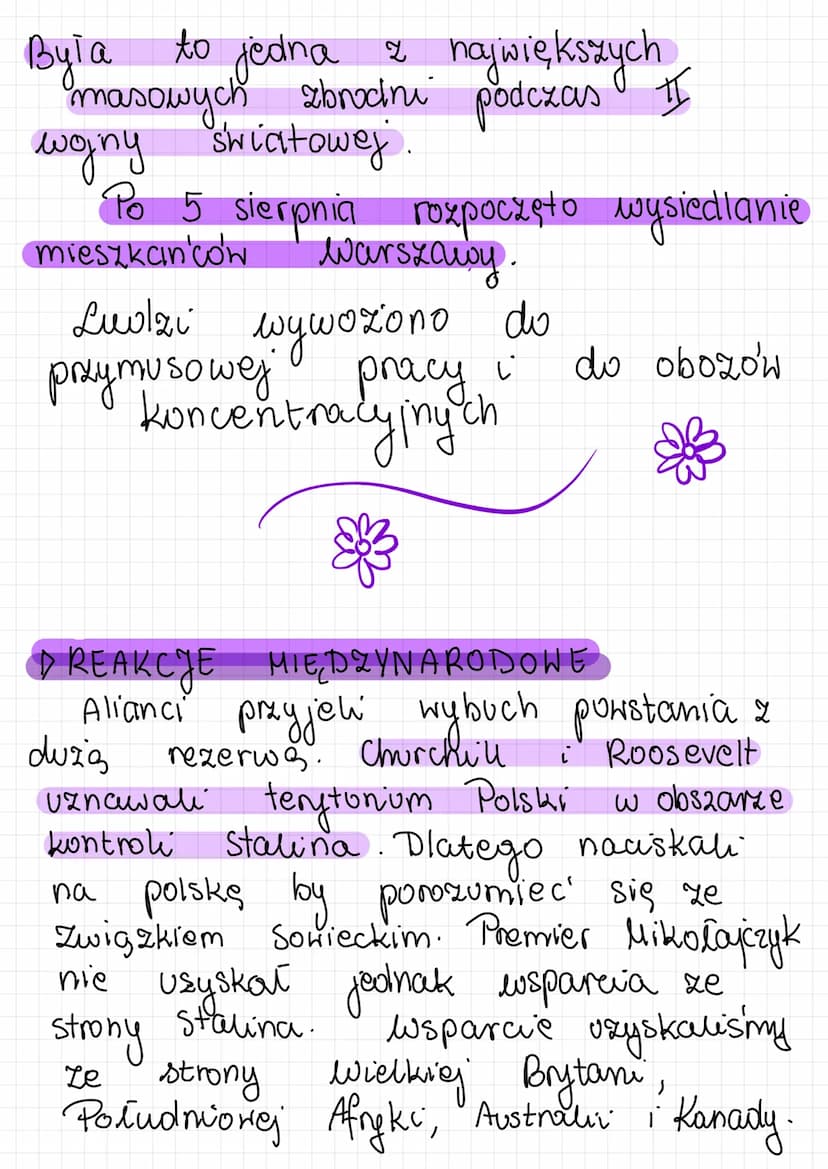 Była to jedna z największych
masowych zbrodni podczas II
wojny światowej.
Po 5 sierpnia rozpoczęto wysiedlanie
mieszkańców Warszawy.
Ludzi wywożono do
przymusowej pracy i do obozów
koncentracyjnych
▷ REAKCJE MIĘDZYNARODOWE
Alianci przyjeli wybuch powstania z
dużą rezerwą. Churchill i Roosevelt
uznawali terytorium Polski w obszarze
kontroli Stalina. Dlatego naciskali
na polskę by porozumieć się ze
Związkiem Sowieckim. Premier Mikołajczyk
nie uzyskał jednak wsparcia ze
strony Stalina. Wsparcie uzyskaliśmy
ze strony Wielkiej Brytani,
Południowej Afryki, Australii i Kanady.